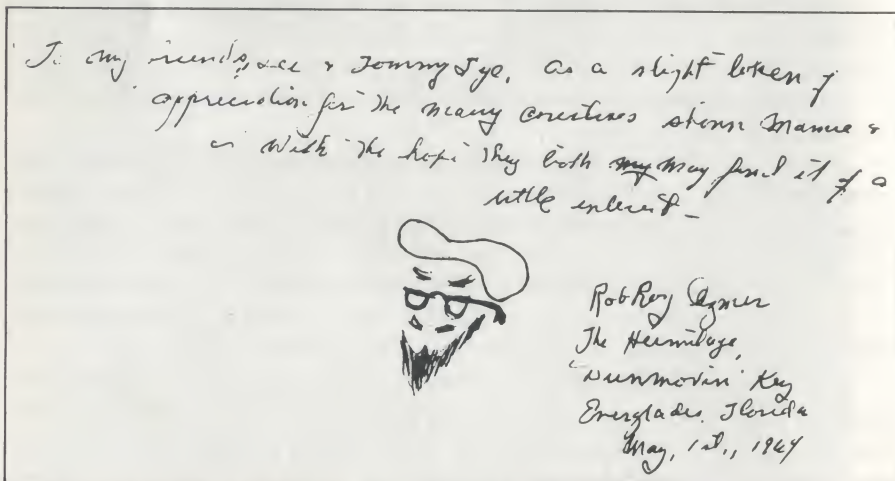 To my friends, Lee & Tommy Tye, as a slight token of
appreciation for the many courtesies shown Mamie &
With the hope they both may find it of a
little interest-
Rob Roy Ozmer
The Hermitage,
"Dunmovin" Key
Everglades, Florida
May, 1st., 1964